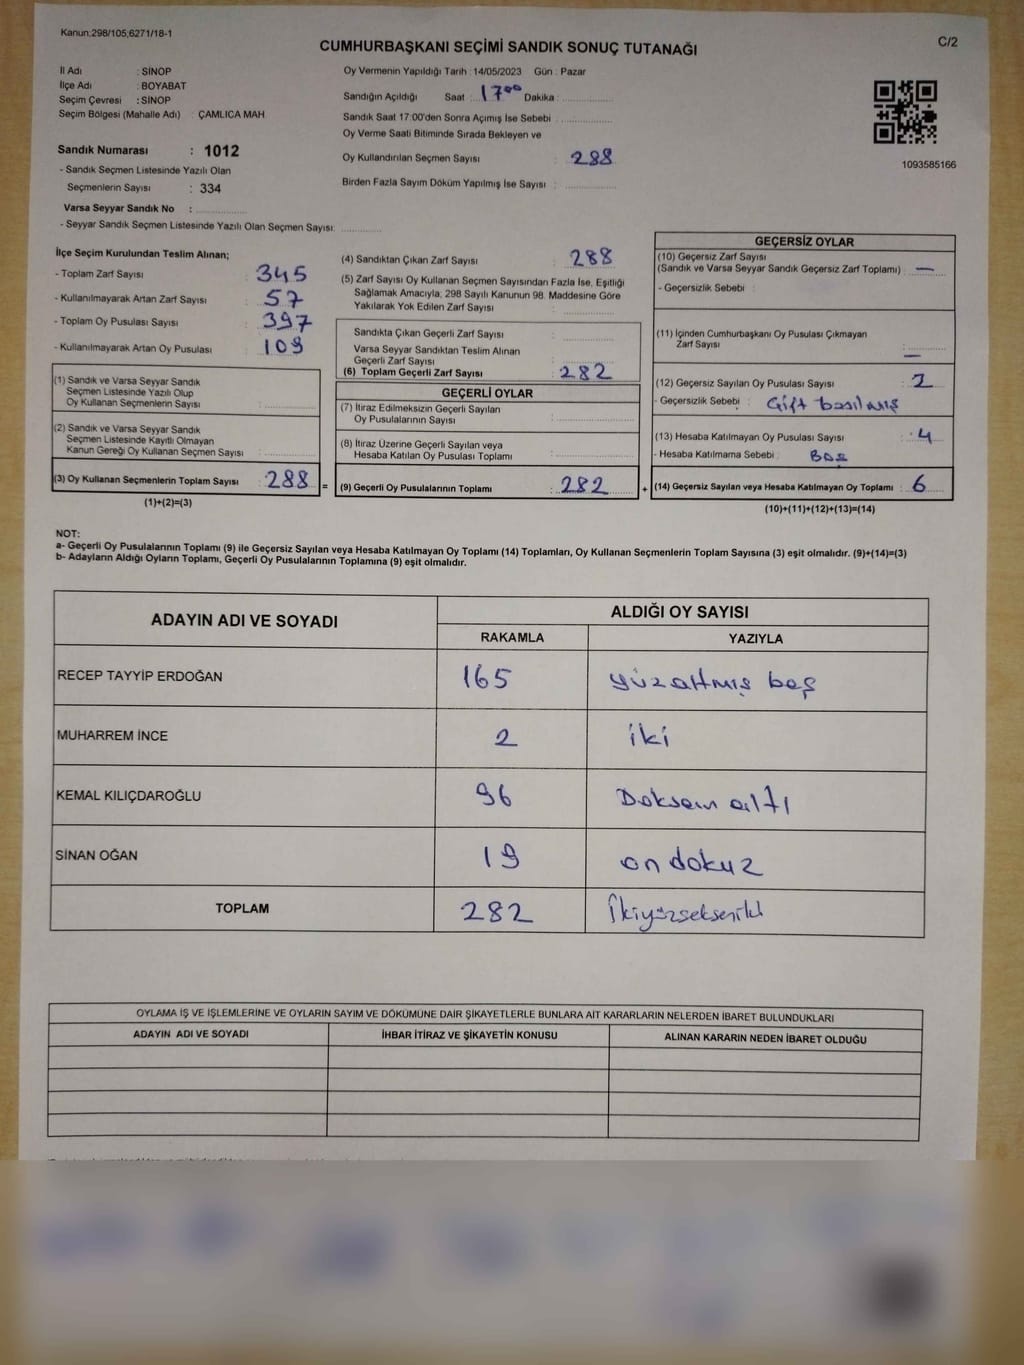 Kanun:298/105;6271/18-1
C/2
CUMHURBAŞKANI SEÇİMİ SANDIK SONUÇ TUTANAĞI
İl Adı : SİNOP
İlçe Adı : BOYABAT
Seçim Çevresi : SİNOP
Seçim Bölgesi (Mahalle Adı) : ÇAMLICA MAH
Sandık Numarası : 1012
- Sandık Seçmen Listesinde Yazılı Olan
Seçmenlerin Sayısı : 334
Varsa Seyyar Sandık No :
- Seyyar Sandık Seçmen Listesinde Yazılı Olan Seçmen Sayısı:
Oy Vermenin Yapıldığı Tarih : 14/05/2023 Gün : Pazar
Sandığın Açıldığı Saat : 17 00 Dakika :
Sandık Saat 17:00'den Sonra Açımış İse Sebebi :
Oy Verme Saati Bitiminde Sırada Bekleyen ve
Oy Kullandırılan Seçmen Sayısı : 288
Birden Fazla Sayım Döküm Yapılmış İse Sayısı :
1093585166
İlçe Seçim Kurulundan Teslim Alınan;
- Toplam Zarf Sayısı : 345
- Kullanılmayarak Artan Zarf Sayısı : 57
- Toplam Oy Pusulası Sayısı : 397
- Kullanılmayarak Artan Oy Pusulası : 109
(1) Sandık ve Varsa Seyyar Sandık
Seçmen Listesinde Yazılı Olup
Oy Kullanan Seçmenlerin Sayısı :
(2) Sandık ve Varsa Seyyar Sandık
Seçmen Listesinde Kayıtlı Olmayan
Kanun Gereği Oy Kullanan Seçmen Sayısı :
(3) Oy Kullanan Seçmenlerin Toplam Sayısı : 288 =
(1)+(2)=(3)
(4) Sandıktan Çıkan Zarf Sayısı : 288
(5) Zarf Sayısı Oy Kullanan Seçmen Sayısından Fazla İse, Eşitliği
Sağlamak Amacıyla, 298 Sayılı Kanunun 98. Maddesine Göre
Yakılarak Yok Edilen Zarf Sayısı :
Sandıkta Çıkan Geçerli Zarf Sayısı :
Varsa Seyyar Sandıktan Teslim Alınan
Geçerli Zarf Sayısı :
(6) Toplam Geçerli Zarf Sayısı : 282
GEÇERLİ OYLAR
(7) İtiraz Edilmeksizin Geçerli Sayılan
Oy Pusulalarının Sayısı :
(8) İtiraz Üzerine Geçerli Sayılan veya
Hesaba Katılan Oy Pusulası Toplamı :
(9) Geçerli Oy Pusulalarının Toplamı : 282 +
GEÇERSİZ OYLAR
(10) Geçersiz Zarf Sayısı
(Sandık ve Varsa Seyyar Sandık Geçersiz Zarf Toplamı) : —
- Geçersizlik Sebebi :
(11) İçinden Cumhurbaşkanı Oy Pusulası Çıkmayan
Zarf Sayısı : —
(12) Geçersiz Sayılan Oy Pusulası Sayısı : 2
- Geçersizlik Sebebi : Çift basılmış
(13) Hesaba Katılmayan Oy Pusulası Sayısı : 4
- Hesaba Katılmama Sebebi : Boş
(14) Geçersiz Sayılan veya Hesaba Katılmayan Oy Toplamı : 6
(10)+(11)+(12)+(13)=(14)
NOT:
a- Geçerli Oy Pusulalarının Toplamı (9) ile Geçersiz Sayılan veya Hesaba Katılmayan Oy Toplamı (14) Toplamları, Oy Kullanan Seçmenlerin Toplam Sayısına (3) eşit olmalıdır. (9)+(14)=(3)
b- Adayların Aldığı Oyların Toplamı, Geçerli Oy Pusulalarının Toplamına (9) eşit olmalıdır.
ADAYIN ADI VE SOYADI ALDIĞI OY SAYISI
RAKAMLA YAZIYLA
RECEP TAYYİP ERDOĞAN 165 yüzaltmış beş
MUHARREM İNCE 2 iki
KEMAL KILIÇDAROĞLU 96 Doksan altı
SİNAN OĞAN 19 on dokuz
TOPLAM 282 İkiyüzsekseniki
OYLAMA İŞ VE İŞLEMLERİNE VE OYLARIN SAYIM VE DÖKÜMÜNE DAİR ŞİKAYETLERLE BUNLARA AİT KARARLARIN NELERDEN İBARET BULUNDUKLARI
ADAYIN ADI VE SOYADI İHBAR İTİRAZ VE ŞİKAYETİN KONUSU ALINAN KARARIN NEDEN İBARET OLDUĞU